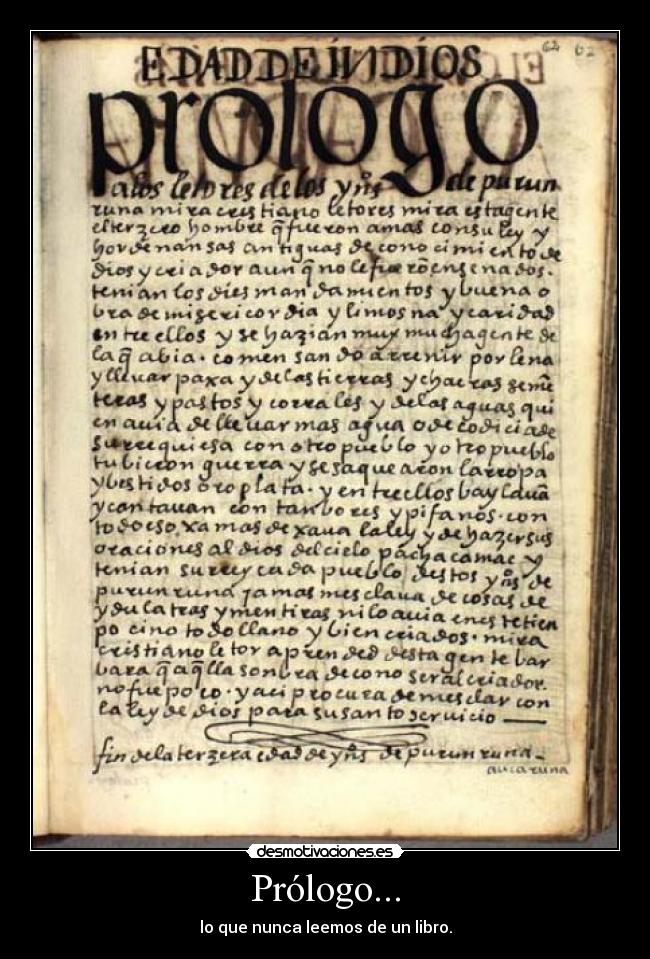 EDAD DE INDIOS
62 62
prologo
a los letores de los yn̄s de purun
runa mira cristiano letores mira esta gente
el terzero hombre q̄ fueron a mas con su ley y
hordenansas antiguas de conocimiento de
dios y criador aun q̄ no le fuerōensenados.
tenian los dies mandamientos y buena o
bra de misericordia y limosna y caridad
entre ellos y se hazian muy mucha gente de
la q̄ abia. comensando a rrenir por lena
y lleuar paxa y de las tierras y chacras seme
teras y pastos y corrales y de las aguas qui
en auia de lleuar mas agua o de codicia de
su rrequiesa con otro pueblo y otro pueblo
tubieron guerra y se saquearon la rropa
y bestidos oro plata. y entre ellos baylauā
y cantauan con tanbores y pifanos. con
todo eso xamas dexaua la ley y de hazer sus
oraciones al dios del cielo pacha camac y
tenian su rrey cada pueblo destos yn̄s de
purun runa jamas mesclaua de cosas de
ydulatras y mentiras ni lo auia en es tetien
po cino todo llano y bien criados. mira
cristiano letor aprended desta gente bar
bara q̄ aq̄lla sonbra de conoser al criador
no fue poco. y aci procura de mesclar con
la ley de dios para su santo seruicio
fin de la terzera edad de yn̄s de purun runa
auca runa
desmotivaciones.es
Prólogo...
lo que nunca leemos de un libro.